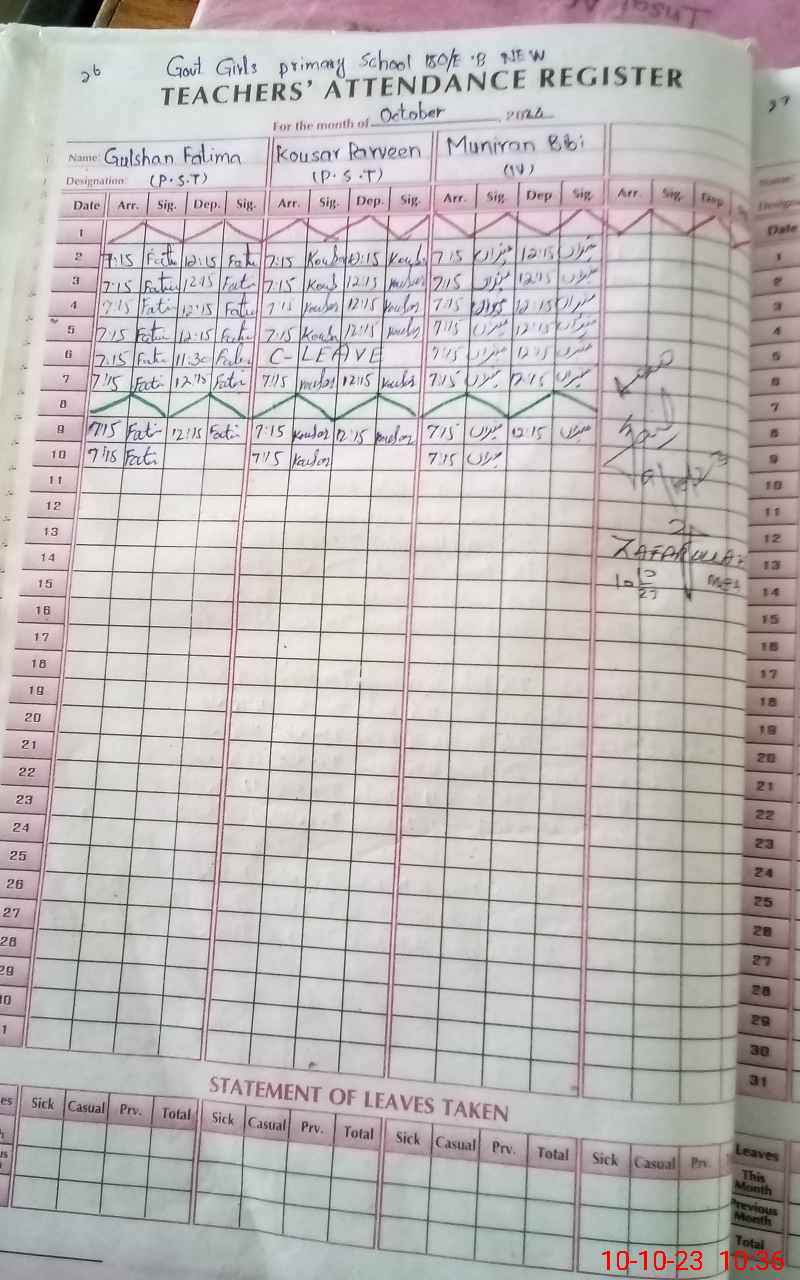 26
Govt Girls primary School 150/E.B NEW
TEACHERS' ATTENDANCE REGISTER
For the month of October, 2024
Name: Gulshan Fatima Kousar Parveen Muniran Bibi
Designation: (P.S.T) (P.S.T) (IV)
Date Arr. Sig. Dep. Sig. Arr. Sig. Dep. Sig. Arr. Sig. Dep Sig. Arr. Sig.
1
2 7:15 Fati 12:15 Fati 7:15 Kousar 12:15 Kousar 7:15 منیراں 12:15 منیراں
3 7:15 Fati 12:15 Fati 7:15 Kousar 12:15 Kousar 7:15 منیراں 12:15 منیراں
4 7:15 Fati 12:15 Fati 7:15 Kousar 12:15 Kousar 7:15 منیراں 12:15 منیراں
5 7:15 Fati 12:15 Fati 7:15 Kousar 12:15 Kousar 7:15 منیراں 12:15 منیراں
6 7:15 Fati 11:30 Fati C-LEAVE 7:15 منیراں 12:15 منیراں
7 7:15 Fati 12:15 Fati 7:15 Kousar 12:15 Kousar 7:15 منیراں 12:15 منیراں
8
9 7:15 Fati 12:15 Fati 7:15 Kousar 12:15 Kousar 7:15 منیراں 12:15 منیراں
10 7:15 Fati 7:15 Kousar 7:15 منیراں
11
12
13
14
15
16
17
18
19
20
21
22
23
24
25
26
27
28
29
ZAFARULLAH
10
10
23
STATEMENT OF LEAVES TAKEN
Sick Casual Prv. Total Sick Casual Prv. Total Sick Casual Prv. Total Sick Casual Prv.
27
Date
1
2
3
4
5
6
7
8
9
10
11
12
13
14
15
16
17
18
19
20
21
22
23
24
25
26
27
28
29
30
31
Leaves
This
Month
Previous
Month
Total
10-10-23 10:36